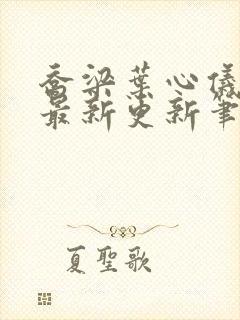 喬梁葉心儀
最新更新筆
夏聖歌